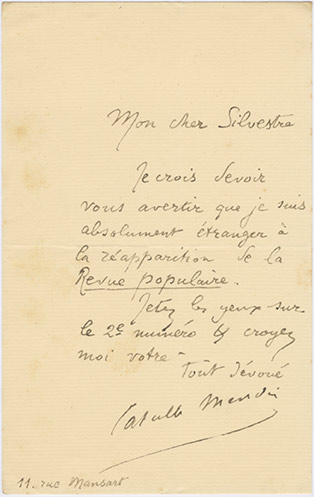 Mon cher Silvestre
Je crois devoir
vous avertir que je suis
absolument étranger à
la réapparition de la
Revue populaire.
Jetez les yeux sur
le 2e numéro & croyez
moi votre
tout dévoué
Catulle Mendès
11. rue Mansart